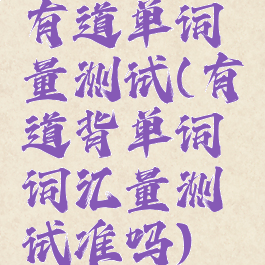 有道单词
量测试(有
道背单词
词汇量测
试准吗)